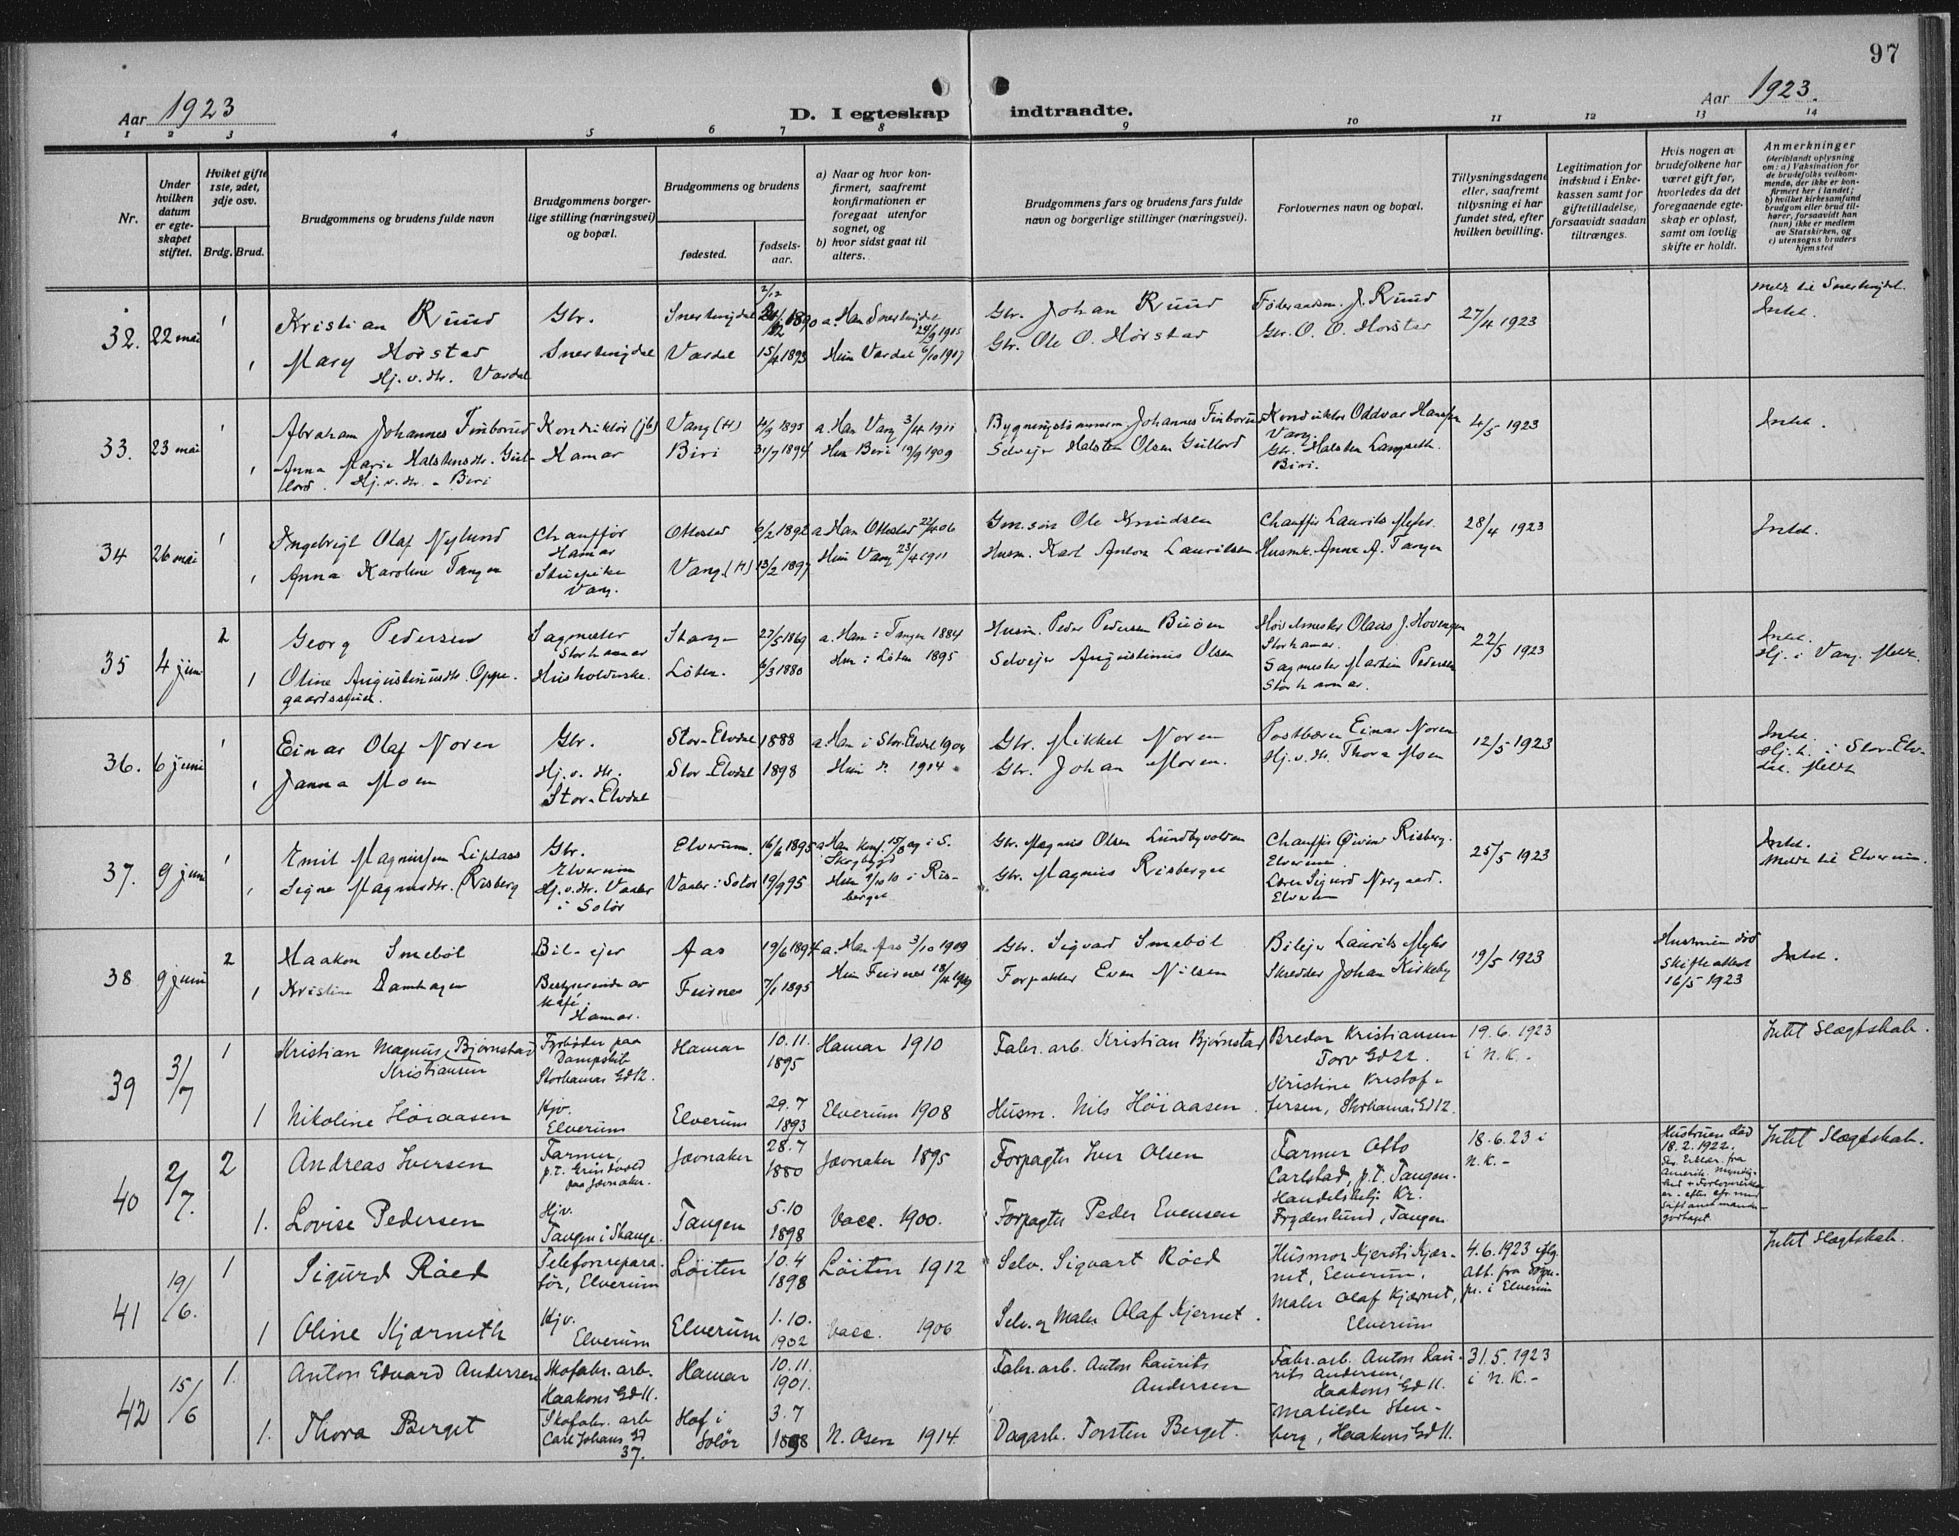 97
Aar 1923
D. I egteskap indtraadte.
Aar 1923.
1 2 3 4 5 6 7 8 9 10 11 12 13 14
Nr.
Under hvilken datum er egteskapet stiftet.
Hvilket gifte 1ste, 2det, 3dje osv.
Brdg. Brud.
Brudgommens og brudens fulde navn
Brudgommens borgerlige stilling (næringsvei) og bopæl.
Brudgommens og brudens
fødested.
fødselsaar.
a) Naar og hvor konfirmert, saafremt konfirmationen er foregaat utenfor sognet, og
b) hvor sidst gaat til alters.
Brudgommens fars og brudens fars fulde navn og borgerlige stillinger (næringsvei).
Forlovernes navn og bopæl.
Tillysningsdagene eller, saafremt tillysning ei har fundet sted, efter hvilken bevilling.
Legitimation for indskud i Enkekassen samt for giftetilladelse, forsaavidt saadan tiltrænges.
Hvis nogen av brudefolkene har været gift før, hvorledes da det foregaaende egteskap er opløst, samt om lovlig skifte er holdt.
Anmerkninger
(deriblandt oplysning om: a) Vaksination for de brudefolks vedkommende, der ikke er konfirmert her i landet; b) hvilket kirkesamfund brudgom eller brud tilhører, forsaavidt han (hun) ikke er medlem av Statskirken, og c) utensogns bruders hjemsted
32. 22 mai 1 Kristian Ruud Gbr. Snertingdal 1890 a. Han Snertingdal 1905 Gbr. Johan Ruud J. Ruud 27/4 1923 Meldt til Snertingdal. Intet.
1 Mary Hørstad Snertingdal Vardal 15/4 1893 Hun Vardal 6/10 1907 Gbr. Ole O. Hørstad Gbr. O. O. Hørstad
Hj.v.dtr. Vardal
33. 23 mai 1 Abraham Johannes Finborud Konduktør (jb) Vang (H) 4/9 1895 a. Han Vang 3/4 1911 Johannes Finborud Konduktør Oddvar Hansen Vang. 4/5 1923 Intet.
1 Anna Marie Halstensdtr. Gullord. Hj.v.dtr. Biri Hamar Biri 31/7 1894 Hun Biri 19/9 1909 Selveier Halsten Olsen Gullord Gbr. Halsten Langseth Biri.
34 26 mai 1 Ingebrigt Olaf Nylund Chauffør Hamar Ottestad 6/2 1892 a. Han Ottestad 22/4 06 Ole Knudsen Chauffør Laurits Myhr. 28/4 1923 Intet.
1 Anna Karoline Tangen Stuepike Vang. Vang (H) 13/2 1897 Hun Vang 23/4 1911 Husm. Karl Anton Lauritsen Husmk. Anna A. Tangen
35 4 juni 2 Georg Pedersen Sagmester Storhamar Stange 27/5 1869 a. Han i Tangen 1884 Husm. Peder Pedersen Olaus J. Hovengen Storhamar. 22/5 1923 Intet. Hj. i Vang. Meldt.
1 Oline Augustinusdtr. Oppegaardsstuen. Husholderske. Løten. 6/3 1880 Hun i Løten 1895 Selveier Augustinus Olsen Sagmester Martin Pedersen Storhamar.
36. 6 juni 1 Einar Olaf Noren Gbr. Stor-Elvdal 1888 a. Han i Stor-Elvdal 1904 Gbr. Mikkel Noren Postbærer Einar Noren 12/5 1923 Intet. Hj.h. i Stor-Elvdal. Meldt
1 Janna Moen Hj.v.dtr. Stor-Elvdal Stor-Elvdal 1898 Hun d. 1914. Gbr. Johan Moren. Hj.v.dtr. Thora Moen
37. 9 juni 1 Emil Magnussen Liplass Gbr. Elverum Elverum. 16/6 1895 a. Han konf. 15/8 09 i S. Skogbygd Gbr. Magnus Olsen Lundbyvolden Chauffør Øivind Risberg. Elverum. 25/5 1923 Intet. Meldt til Elverum.
1 Signe Magnusdtr. Risberg Hj.v.dtr. Vaaler i Solør Vaaler i Solør 19/9 95 Hun 9/10 10 i Risberget Gbr. Magnus Risberget Lærer Sigurd Norgaard. Elverum
38 9 juni 2 Haakon Smebøl Bil-ejer Aas 19/6 1894 a. Han Aas 3/10 1909 Gbr. Sigvard Smebøl Bilejer Laurits Myhr 19/5 1923 Hustruen død Skifteattest 16/5 1923 Intet.
1 Kristine Damhagen Bestyrerinde av kafé. Hamar. Furnes 7/1 1895 Hun Furnes 18/4 1909 Forpakter Even Nilsen Skredder Johan Kirkeby
39 3/7 1 Kristian Magnus Bjørnstad Kristiansen Fyrbøder paa Dampskib Storhamar Gd 12. Hamar 10.11. 1895 Hamar 1910 Fabr.arb. Kristian Bjørnstad Bredor Kristiansen Torv Gd 22. 19.6.1923 i N.K.- Intet Slægtskab.
1 Nikoline Höiaasen Hjv. Elverum Elverum 29.7 1893 Elverum 1908 Husm. Nils Höiaasen Kristine Kristoffersen, Storhamar Gd 12.
40 2/7. 2 Andreas Iversen Farmer, p.t. Grindvold paa Jævnaker. Jævnaker 28.7 1880 Jævnaker 1895 Forpagter Iver Olsen Farmer Otto Carlstad, p.t. Tangen. 18.6.23 i N.K.- Hustruen död 18.2.1922. Intet Slægtskab.
1. Lovise Pedersen Hjv. Tangen i Stange. Tangen 5.10 1898 Vacc. 1900. Forpagter Peder Evensen Handelsbetj. Kr. Frydenlund, Tangen
41 19/6. 1 Sigurd Röed Telefonreparatör, Elverum Löiten 10.4 1898 Löiten 1912 Selv. Sigvart Röed Husmor Kjersti Kjærnet, Elverum. 4.6.1923 iflg. Att. fra Sogn.pr. i Elverum Intet Slægtskab.
1 Oline Kjærneth Hjv. Elverum Elverum 1.10. 1902 Vacc. 1906 Selv. og Maler Olaf Kjernet. Maler Olaf Kjærnet, Elverum
42 15/6 1. Anton Edvard Andersen Skofabr. arb. Haakons Gd 11. Hamar 10.11. 1901. Fabr.arb. Anton Laurits Andersen Fabr.arb. Anton Laurits Andersen, Haakons Gd 11. 31.5.1923 i N.K.-
1. Thora Berget Skofabr. arb Carl Johans Gd 37. Hof i Solör 3.7 1898 N. Osen 1914. Dagarb. Torsten Berget. Matilde Stenberg, Haakons Gd 11.